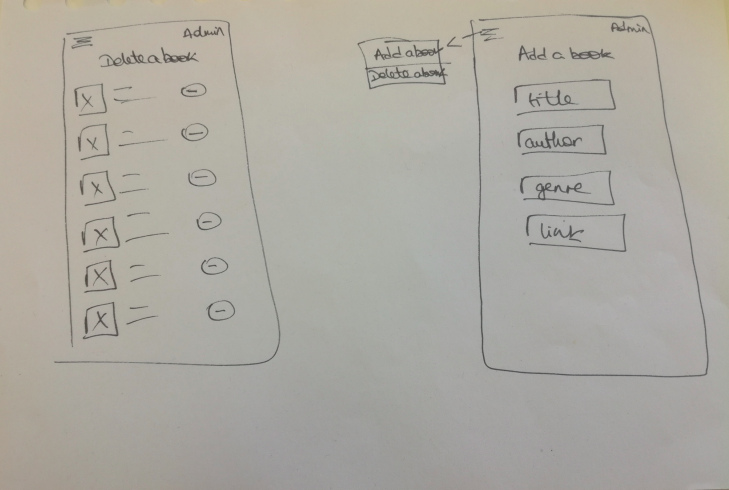 Admin
Delete a book
X
X
X
X
X
X
Add a book
Delete a book
Admin
Add a book
title
author
genre
link